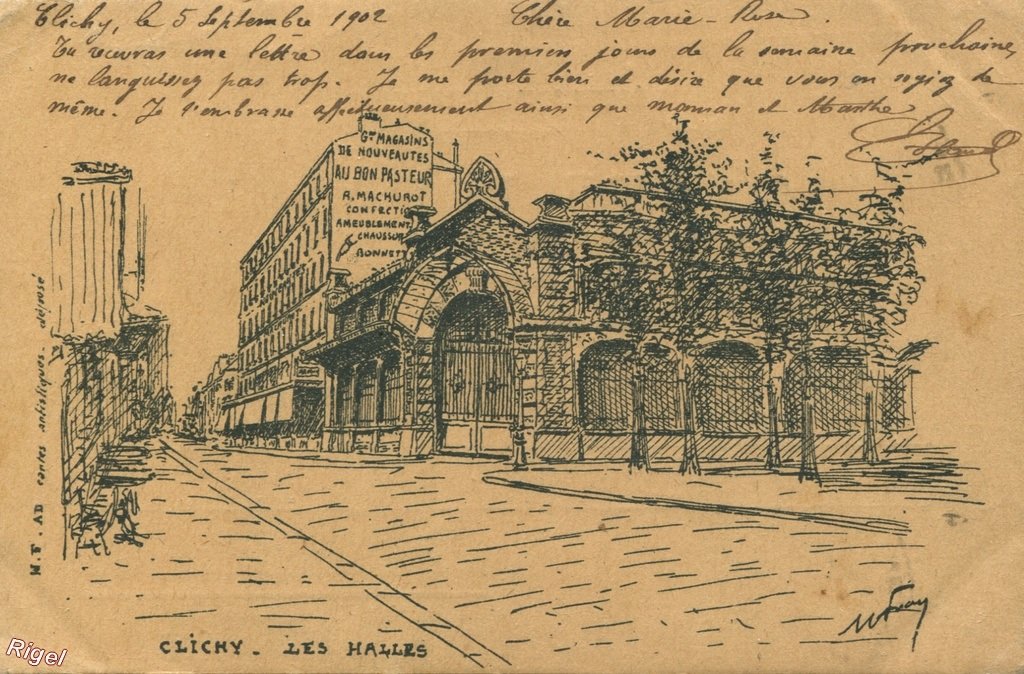 Clichy, le 5 Septembre 1902 Chère Marie-Rose.
Tu recevras une lettre dans les premiers jours de la semaine prochaine,
ne languissez pas trop. Je me porte bien et désire que vous en soyiez de
même. Je t'embrasse affectueusement ainsi que maman et Marthe
GDS MAGASINS
DE NOUVEAUTES
AU BON PASTEUR
A. MACHUROT
CONFECTI
AMEUBLEMENT
CHAUSSUR
BONNET
W.F. AD cartes artistiques. déposé
CLICHY - LES HALLES
Rigel